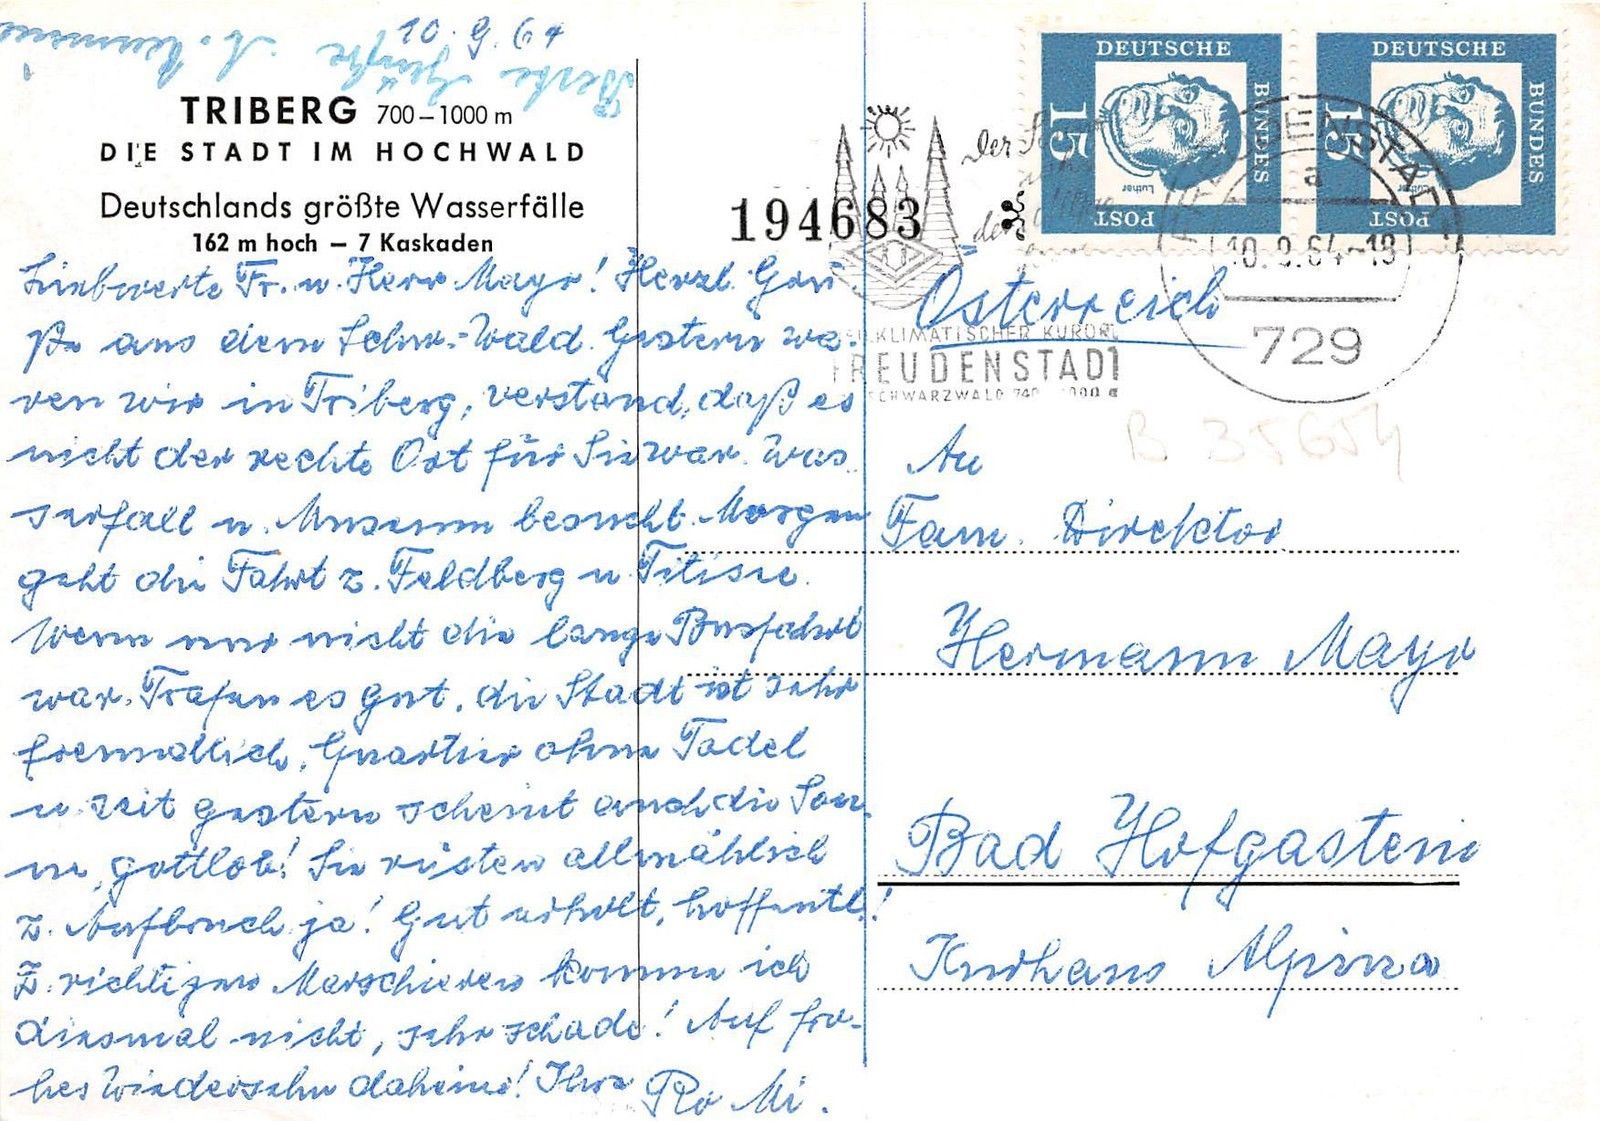 10.9.64
TRIBERG 700–1000 m
DIE STADT IM HOCHWALD
Deutschlands größte Wasserfälle
162 m hoch – 7 Kaskaden
Liebwerte Fr. u. Herr Mayr! Herzl. Grü-
ße aus dem Schw.-Wald. Gestern wa-
ren wir in Triberg, verstand, daß es
nicht der rechte Ort für Sie war. Was-
serfall u. Museum besucht. Morgen
geht die Fahrt z. Feldberg u. Titisee.
Wenn nur nicht die lange Busfahrt
war. Trafen es gut, die Stadt ist sehr
freundlich, Quartier ohne Tadel
u. seit gestern scheint auch die Son-
ne, gottlob! Sie rüsten allmählich
z. Aufbruch ja! Gut erholt, hoffentl.!
Z. richtigen Marschieren komme ich
diesmal nicht, sehr schade! Auf fro-
hes Wiedersehn daheim! Ihre Ro Mi.
194683
DEUTSCHE
BUNDES
POST
15
Luther
DEUTSCHE
BUNDES
POST
15
Luther
Der
der
KLIMATISCHER KURORT
FREUDENSTADT
SCHWARZWALD 740 1000 m
FREUDENSTADT
a
10.9.64-18
729
Österreich
B 35654
An
Fam. Direktor
Hermann Mayr
Bad Hofgastein
Kurhaus Alpina